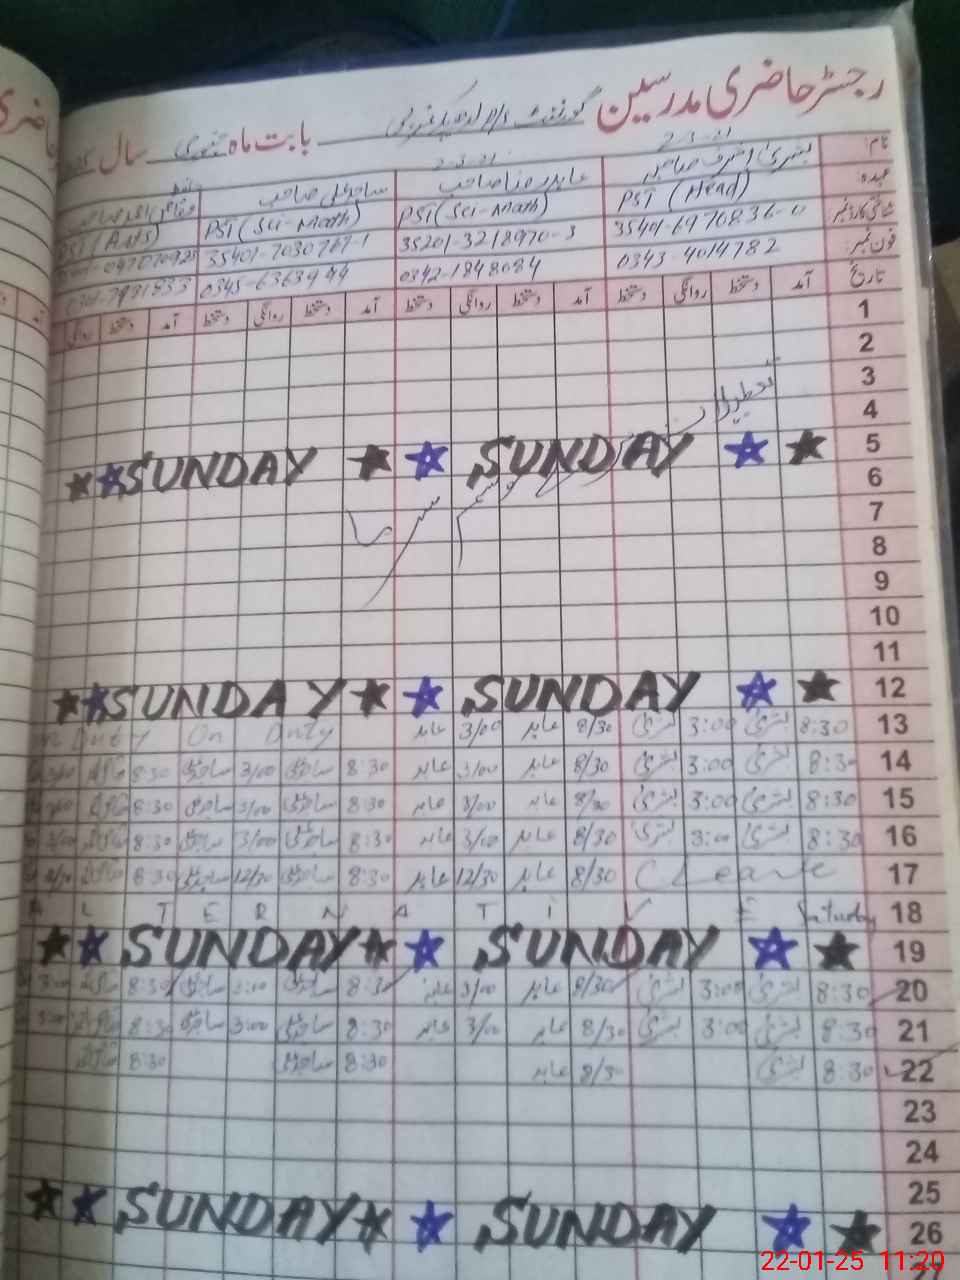 رجسٹر حاضری مدرسین گورنمنٹ بابت ماہ جنوری سال
2-3-21 2-3-21
نام: صاحبہ عابد رضا صاحب ساجد علی صاحب
عہدہ: PST (Head) PST (Sci-Math) PST (Sci-Math) PST (Arts)
شناختی کارڈ نمبر 35401-6970836-0 35201-3218970-3 35401-7030767-1
فون نمبر: 0343-4014782 0342-1848084 0345-6363944
تاریخ آمد دستخط روانگی دستخط آمد دستخط روانگی دستخط آمد دستخط روانگی دستخط آمد دستخط روانگی
1
2
3
4
تعطیلات
5 SUNDAY SUNDAY
6
موسم
7
سرما
8
9
10
11
12 SUNDAY SUNDAY
13 8:30 بشریٰ 3:00 بشریٰ 8/30 عابد 3/00 عابد On Duty On Duty
14 8:30 بشریٰ 3:00 بشریٰ 8/30 عابد 3/00 عابد 8:30 ساجد علی 3/00 ساجد علی 8:30
15 8:30 بشریٰ 3:00 بشریٰ 8/30 عابد 3/00 عابد 8:30 ساجد علی 3/00 ساجد علی 8:30
16 8:30 بشریٰ 3:00 بشریٰ 8/30 عابد 3/00 عابد 8:30 ساجد علی 3/00 ساجد علی 8:30
17 C Leave 8/30 عابد 12/30 عابد 8:30 ساجد علی 12/30 ساجد علی 8:30
18 ALTERNATIVE Saturday
19 SUNDAY SUNDAY
20 8:30 بشریٰ 3:00 بشریٰ 8/30 عابد 3/00 عابد 8:30 ساجد علی 3:00 ساجد علی 8:30
21 8:30 بشریٰ 3:00 بشریٰ 8/30 عابد 3/00 عابد 8:30 ساجد علی 3:00 ساجد علی 8:30
22 8:30 بشریٰ 8/30 عابد 8:30 ساجد علی 8:30
23
24
25
26 SUNDAY SUNDAY
22-01-25 11:20